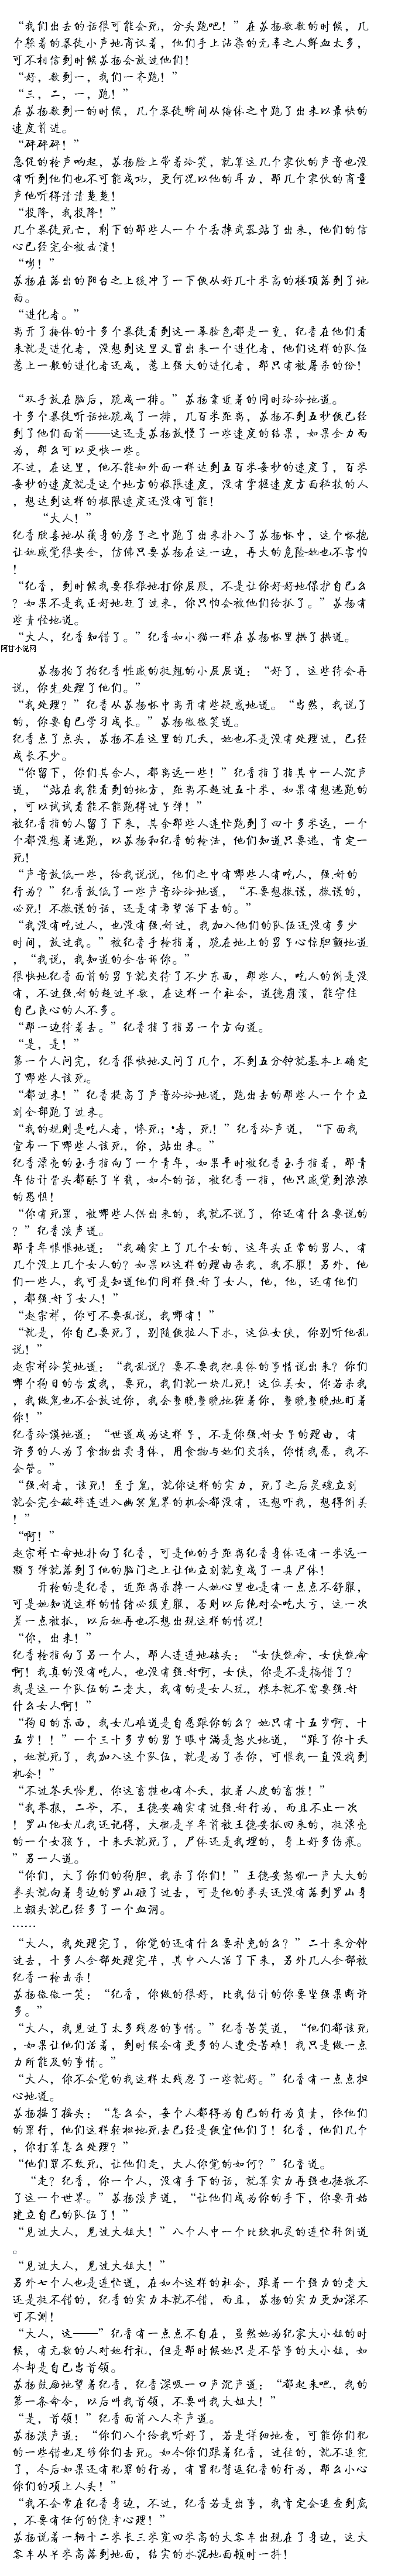 “我们出去的话很可能会死，分头跑吧！”在苏扬数数的时候，几
个躲着的暴徒小声地商议着，他们手上沾染的无辜之人鲜血太多，
可不相信到时候苏扬会放过他们！
“好，数到一，我们一齐跑！”
“三，二，一，跑！”
在苏扬数到一的时候，几个暴徒瞬间从掩体之中跑了出来以最快的
速度前进。
“砰砰砰！”
急促的枪声响起，苏扬脸上带着冷笑，就算这几个家伙的声音也没
有听到他们也不可能成功，更何况以他的耳力，那几个家伙的商量
声他听得清清楚楚！
“投降，我投降！”
几个暴徒死亡，剩下的那些人一个个丢掉武器站了出来，他们的信
心已经完全被击溃！
“唰！”
苏扬在落出的阳台之上缓冲了一下便从好几十米高的楼顶落到了地
面。
“进化者。”
离开了掩体的十多个暴徒看到这一幕脸色都是一变，纪香在他们看
来就是进化者，没想到这里又冒出来一个进化者，他们这样的队伍
惹上一般的进化者还成，惹上强大的进化者，那只有被屠杀的份！
“双手放在脑后，跪成一排。”苏扬靠近着的同时冷冷地道。
十多个暴徒听话地跪成了一排，几百米距离，苏扬不到五秒便已经
到了他们面前——这还是苏扬放慢了一些速度的结果，如果全力而
为，那么可以更快一些。
不过，在这里，他不能如外面一样达到五百米每秒的速度了，百米
每秒的速度就是这个地方的极限速度，没有掌握速度方面秘技的人
，想达到这样的极限速度还没有可能！
“大人！”
纪香欣喜地从藏身的房子之中跑了出来扑入了苏扬怀中，这个怀抱
让她感觉很安全，仿佛只要苏扬在这一边，再大的危险她也不害怕
！
“纪香，到时候我要狠狠地打你屁股，不是让你好好地保护自己么
？如果不是我正好地赶了过来，你只怕会被他们给抓了。”苏扬有
些责怪地道。
“大人，纪香知错了。”纪香如小猫一样在苏扬怀里拱了拱道。
阿甘小说网
苏扬拍了拍纪香性感的挺翘的小屁屁道：“好了，这些待会再
说，你先处理了他们。”
“我处理？”纪香从苏扬怀中离开有些疑惑地道。“当然，我说了
的，你要自己学习成长。”苏扬微微笑道。
纪香点了点头，苏扬不在这里的几天，她也不是没有处理过，已经
成长不少。
“你留下，你们其余人，都离远一些！”纪香指了指其中一人沉声
道，“站在我能看到的地方，距离不超过五十米，如果有想逃跑的
，可以试试看能不能跑得过子弹！”
被纪香指的人留了下来，其余那些人连忙跑到了四十多米远，一个
个都没想着逃跑，以苏扬和纪香的枪法，他们知道只要逃，肯定一
死！
“声音放低一些，给我说说，他们之中有哪些人有吃人，强.奸的
行为？”纪香放低了一些声音冷冷地道，“不要想撒谎，撒谎的，
必死！不撒谎的话，还是有希望活下去的。”
“我没有吃过人，也没有强.奸过，我加入他们的队伍还没有多少
时间，放过我。”被纪香手枪指着，跪在地上的男子心惊胆颤地道
，“我说，我知道的全告诉你。”
很快地纪香面前的男子就交待了不少东西，那些人，吃人的倒是没
有，不过强.奸的超过半数，在这样一个社会，道德崩溃，能守住
自己良心的人不多。
“那一边待着去。”纪香指了指另一个方向道。
“是，是！”
第一个人问完，纪香很快地又问了几个，不到五分钟就基本上确定
了哪些人该死。
“都过来！”纪香提高了声音冷冷地道，跑出去的那些人一个个立
刻全部跑了过来。
“我的规则是吃人者，惨死；·者，死！”纪香冷声道，“下面我
宣布一下哪些人该死，你，站出来。”
纪香漂亮的玉手指向了一个青年，如果平时被纪香玉手指着，那青
年估计骨头都酥了半截，如今的话，被纪香一指，他只感觉到浓浓
的恐惧！
“你有死罪，被哪些人供出来的，我就不说了，你还有什么要说的
？”纪香淡声道。
那青年恨恨地道：“我确实上了几个女的，这年头正常的男人，有
几个没上几个女人的？如果以这样的理由杀我，我不服！另外，他
们一些人，我可是知道他们同样强.奸了女人，他，他，还有他们
，都强.奸了女人！”
“赵宗祥，你可不要乱说，我哪有！”
“就是，你自己要死了，别随便拉人下水，这位女侠，你别听他乱
说！”
赵宗祥冷笑地道：“我乱说？要不要我把具体的事情说出来？你们
哪个狗日的告发我，要死，我们就一块儿死！这位美女，你若杀我
，我做鬼也不会放过你，我会整晚整晚地缠着你，整晚整晚地盯着
你！”
纪香冷漠地道：“世道成为这样子，不是你强.奸女子的理由，有
许多的人为了食物出卖身体，用食物与她们交换，你情我愿，我不
会管。”
“强.奸者，该死！至于鬼，就你这样的实力，死了之后灵魂立刻
就会完全破碎连进入幽冥鬼界的机会都没有，还想吓我，想得倒美
！”
“啊！”
赵宗祥亡命地扑向了纪香，可是他的手距离纪香身体还有一米远一
颗子弹就落到了他的脑门之上让他立刻就变成了一具尸体！
开枪的是纪香，近距离杀掉一人她心里也是有一点点不舒服，
可是她知道这样的情绪必须克服，否则以后绝对会吃大亏，这一次
差一点被抓，以后她再也不想出现这样的情况！
“你，出来！”
纪香枪指向了另一个人，那人连连地磕头：“女侠饶命，女侠饶命
啊！我真的没有吃人，也没有强.奸啊，女侠，你是不是搞错了？
我是这一个队伍的二老大，我有的是女人玩，根本就不需要强.奸
什么女人啊！”
“狗日的东西，我女儿难道是自愿跟你的么？她只有十五岁啊，十
五岁！！”一个三十多岁的男子眼中满是怒火地道，“跟了你十天
，她就死了，我加入这个队伍，就是为了杀你，可恨我一直没找到
机会！”
“不过苍天怜见，你这畜牲也有今天，披着人皮的畜牲！”
“我举报，二爷，不，王德安确实有过强.奸行为，而且不止一次
！罗山他女儿我还记得，大概是半年前被王德安抓回来的，挺漂亮
的一个女孩子，十来天就死了，尸体还是我埋的，身上好多伤痕。
”另一人道。
“你们，大了你们的狗胆，我杀了你们！”王德安怒吼一声大大的
拳头就向着身边的罗山砸了过去，可是他的拳头还没有落到罗山身
上额头就已经多了一个血洞。
……
“大人，我处理完了，你觉的还有什么要补充的么？”二十来分钟
过去，十多人全部处理完毕，其中八人活了下来，另外几人全部被
纪香一枪击杀！
苏扬微微一笑：“纪香，你做的很好，比我估计的你要坚强果断许
多。”
“大人，我见过了太多残忍的事情。”纪香苦笑道，“他们都该死
，如果让他们活着，到时候会有更多的人遭受苦难！我只是做一点
力所能及的事情。”
“大人，你不会觉的我这样太残忍了一些就好。”纪香有一点点担
心地道。
苏扬摇了摇头：“怎么会，每个人都得为自己的行为负责，依他们
的罪行，他们这样轻松地死去已经是便宜他们了！纪香，他们几个
，你打算怎么处理？”
“他们罪不致死，让他们走，大人你觉的如何？”纪香道。
“走？纪香，你一个人，没有手下的话，就算实力再强也拯救不
了这一个世界。”苏扬淡声道，“让他们成为你的手下，你要开始
建立自己的队伍了！”
“见过大人，见过大姐大！”八个人中一个比较机灵的连忙拜倒道
。
“见过大人，见过大姐大！”
另外七个人也是连忙道，在如今这样的社会，跟着一个强力的老大
还是挺不错的，纪香的实力本就不错，而且，苏扬的实力更加深不
可不测！
“大人，这——”纪香有一点点不自在，虽然她为纪家大小姐的时
候，有无数的人对她行礼，但是那时候她只是不管事的大小姐，如
今却是自己当首领。
苏扬鼓励地望着纪香，纪香深吸一口声沉声道：“都起来吧，我的
第一条命令，以后叫我首领，不要叫我大姐大！”
“是，首领！”纪香面前八人齐声道。
苏扬淡声道：“你们八个给我听好了，若是详细地查，可能你们犯
的一些错也足够你们去死。如今你们跟着纪香，过往的，就不追究
了，今后如果还有犯罪的行为，有冒犯背返纪香的行为，那么小心
你们的项上人头！”
“我不会常在纪香身边，不过，纪香若是出事，我肯定会追查到底
，不要有任何的侥幸心理！”
苏扬说着一辆十二米长三米宽四米高的大客车出现在了身边，这大
客车从半米高落到地面，结实的水泥地面顿时一抖！